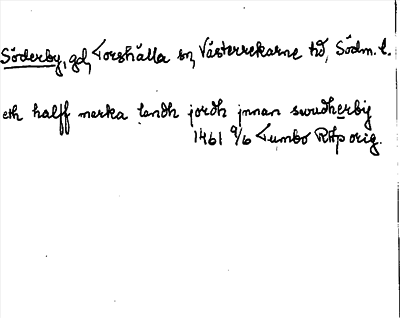 Söderby, gd, Torshälla sn, Västerrekarne hd, Södm. l.
eth halff merka lendh jordh jnnan swudherby
1461 9/6 Tumbo RAp orig.